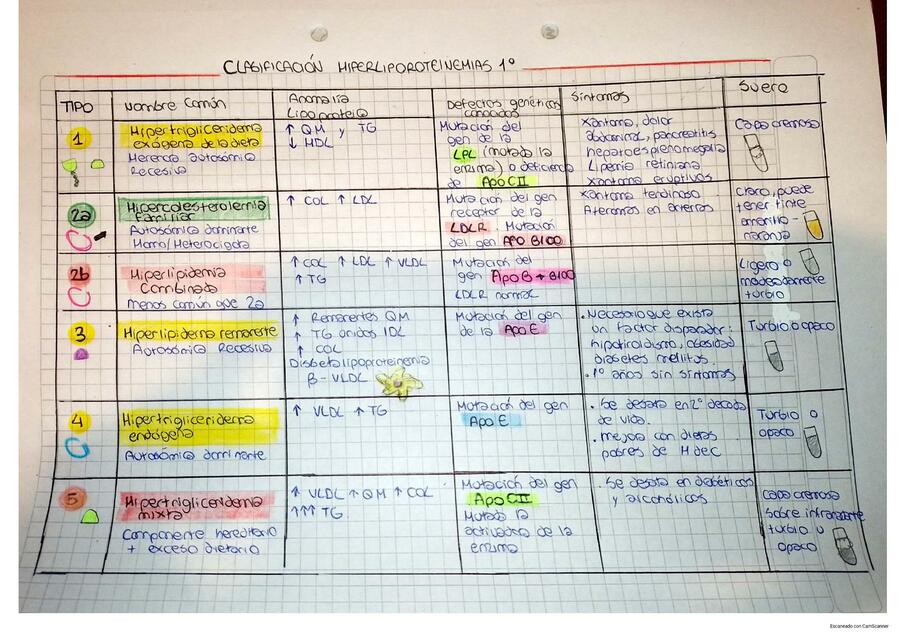 CLASIFICACIÓN HIPERLIPOROTEINEMIAS 1º
TIPO
Nombre Común
Anomalía
Lipoproteía
Defectos genéticos
causados
Síntomas
Suero
1
Hipertrigliceridemia
exógena de la dieta
Herencia autosómica
Recesiva
↑ QM y TG
↓ HDL
Mutación del
gen de la
LPL (mutada la
enzima) o deficiencia
de Apo CII
Xantoma, dolor
abdominal, pancreatitis
hepatoesplenomegalia
Lipemia retiniana
Xantoma eruptivos
Capa cremosa
2a
Hipercolesterolemia
familiar
Autosómica dominante
Homo/Heterocigota
↑ COL ↑ LDL
Mutación del gen
receptor de la
LDLR. Mutación
del gen APO B100
Xantoma tendinoso
Ateromas en arterias
Claro, puede
tener tinte
amarillo-
naranja
2b
Hiperlipidemia
Combinada
Menos común que 2a
↑ COL ↑ LDL ↑ VLDL
↑ TG
Mutación del
gen Apo B + B100
LDLR normal
Ligero o
moderadamente
turbio
3
Hiperlipidemia remanente
Autosómica Recesiva
↑ Remanentes QM
↑ TG unidos IDL
↑ COL
Disbetalipoproteinemia
β-VLDL
Mutación del gen
de la Apo E
. Necesario que exista
un factor disparador:
hipotiroidismo, obesidad
diabetes mellitus
. 1º años sin síntomas
Turbio o opaco
4
Hipertrigliceridemia
endógena
Autosómica dominante
↑ VLDL ↑ TG
Mutación del gen
Apo E
. Se desata en 2º decada
de vida.
. mejora con dietas
pobres de H de C
Turbio o
opaco
5
Hipertrigliceridemia
mixta
Componente hereditario
+ exceso dietario
↑ VLDL ↑ QM ↑ COL
↑↑↑ TG
Mutación del gen
Apo CII
Mutada la
activadora de la
enzima
. Se desata en diabéticos
y alcohólicos
Capa cremosa
sobre infranadante
turbio u
opaco
Escaneado con CamScanner